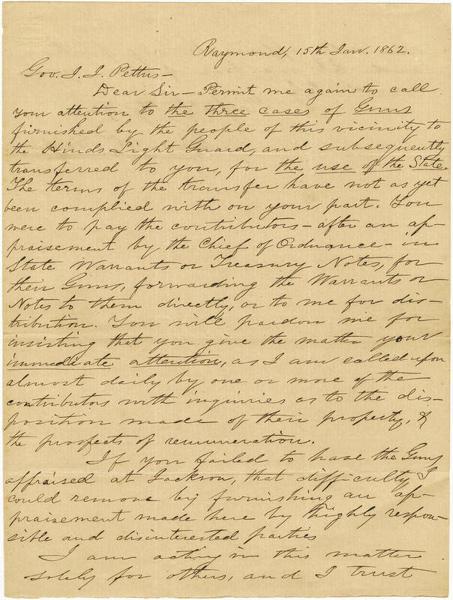 Raymond, 15th Jan. 1862.
Gov. J. J. Pettus—
Dear Sir—Permit me again to call
your attention to the three cases of Guns
furnished by the people of this vicinity to
the Hinds Light Guard, and subsequently
transferred to you, for the use of the State.
The terms of the transfer have not as yet
been complied with on your part. You
were to pay the contributors—after an ap-
praisement by the Chief of Ordnance—in
State Warrants or Treasury Notes, for
their Guns, forwarding the Warrants or
Notes to them directly, or to me for dis-
tribution. You will pardon me for
insisting that you give the matter your
immediate attention, as I am called upon
almost daily by one or more of the
contributors with inquiries as to the dis-
position made of their property, &
the prospects of remuneration.
If you failed to have the Guns
appraised at Jackson, that difficulty I
could remove by furnishing an ap-
praisement made here by highly respon-
sible and disinterested parties
I am acting in this matter
solely for others, and I trust